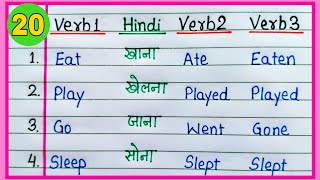 20 Verb1 Hindi Verb2 Verb3
1. Eat खाना Ate Eaten
2. Play खेलना Played Played
3. Go जाना Went Gone
4. Sleep सोना Slept Slept